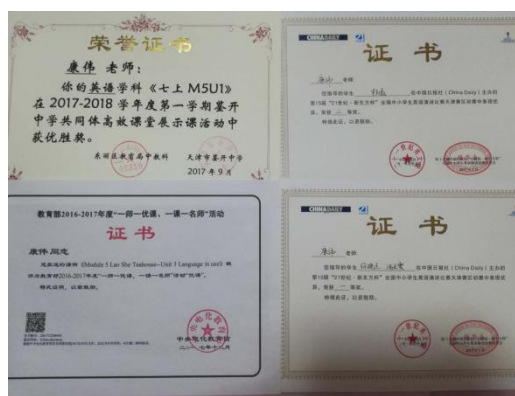 荣誉证书
康伟 老师：
你的英语学科《七上 M5U1》
在 2017-2018 学年度第一学期鉴开
中学共同体高效课堂展示课活动中
获优胜奖。
东丽区教育局中教科 天津市鉴开中学
2017 年 9 月
CHINA DAILY
证 书
康伟 老师
您指导的学生
在中国日报社（China Daily）主办的
第15届“21世纪·新东方杯”全国中小学生英语演讲比赛天津赛区初赛中表现优
异，荣获 二 等奖。
特颁此证，以资鼓励。
教育部2016-2017年度“一师一优课、一课一名师”活动
证 书
康伟 同志
您报送的课例《Module 5 Lao She Teahouse--Unit 3 Language in use》被
评为教育部2016-2017年度“一师一优课、一课一名师”活动“优课”。
特此证明，以资鼓励。
中央电化教育馆
二〇一七年十二月
CHINA DAILY
证 书
康伟 老师
您指导的学生
在中国日报社（China Daily）主办的
第15届“21世纪·新东方杯”全国中小学生英语演讲比赛天津赛区初赛中表现优
异，荣获 一 等奖。
特颁此证，以资鼓励。